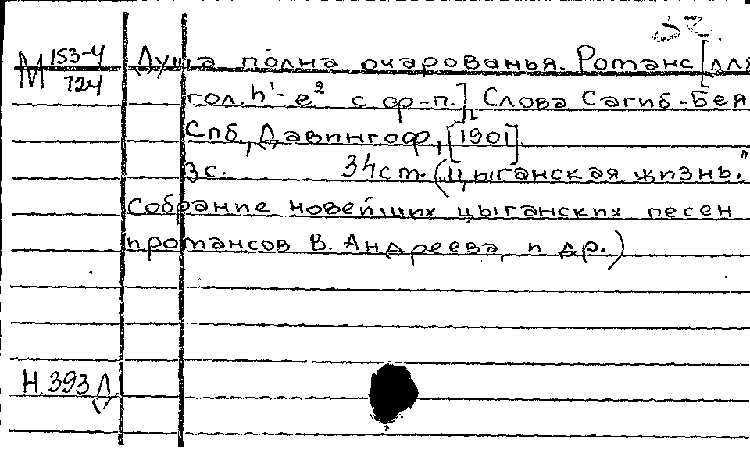 М 153-4/724 Душа полна очарованья. Романс [для
гол. h¹-e² с ф-п.] Слова Сагиб-Бея
Спб, Давингоф, [1901]
3с. 34ст. (Цыганская жизнь."
Собрание новейших цыганских песен
и романсов В. Андреева и др.)
Н.393Д